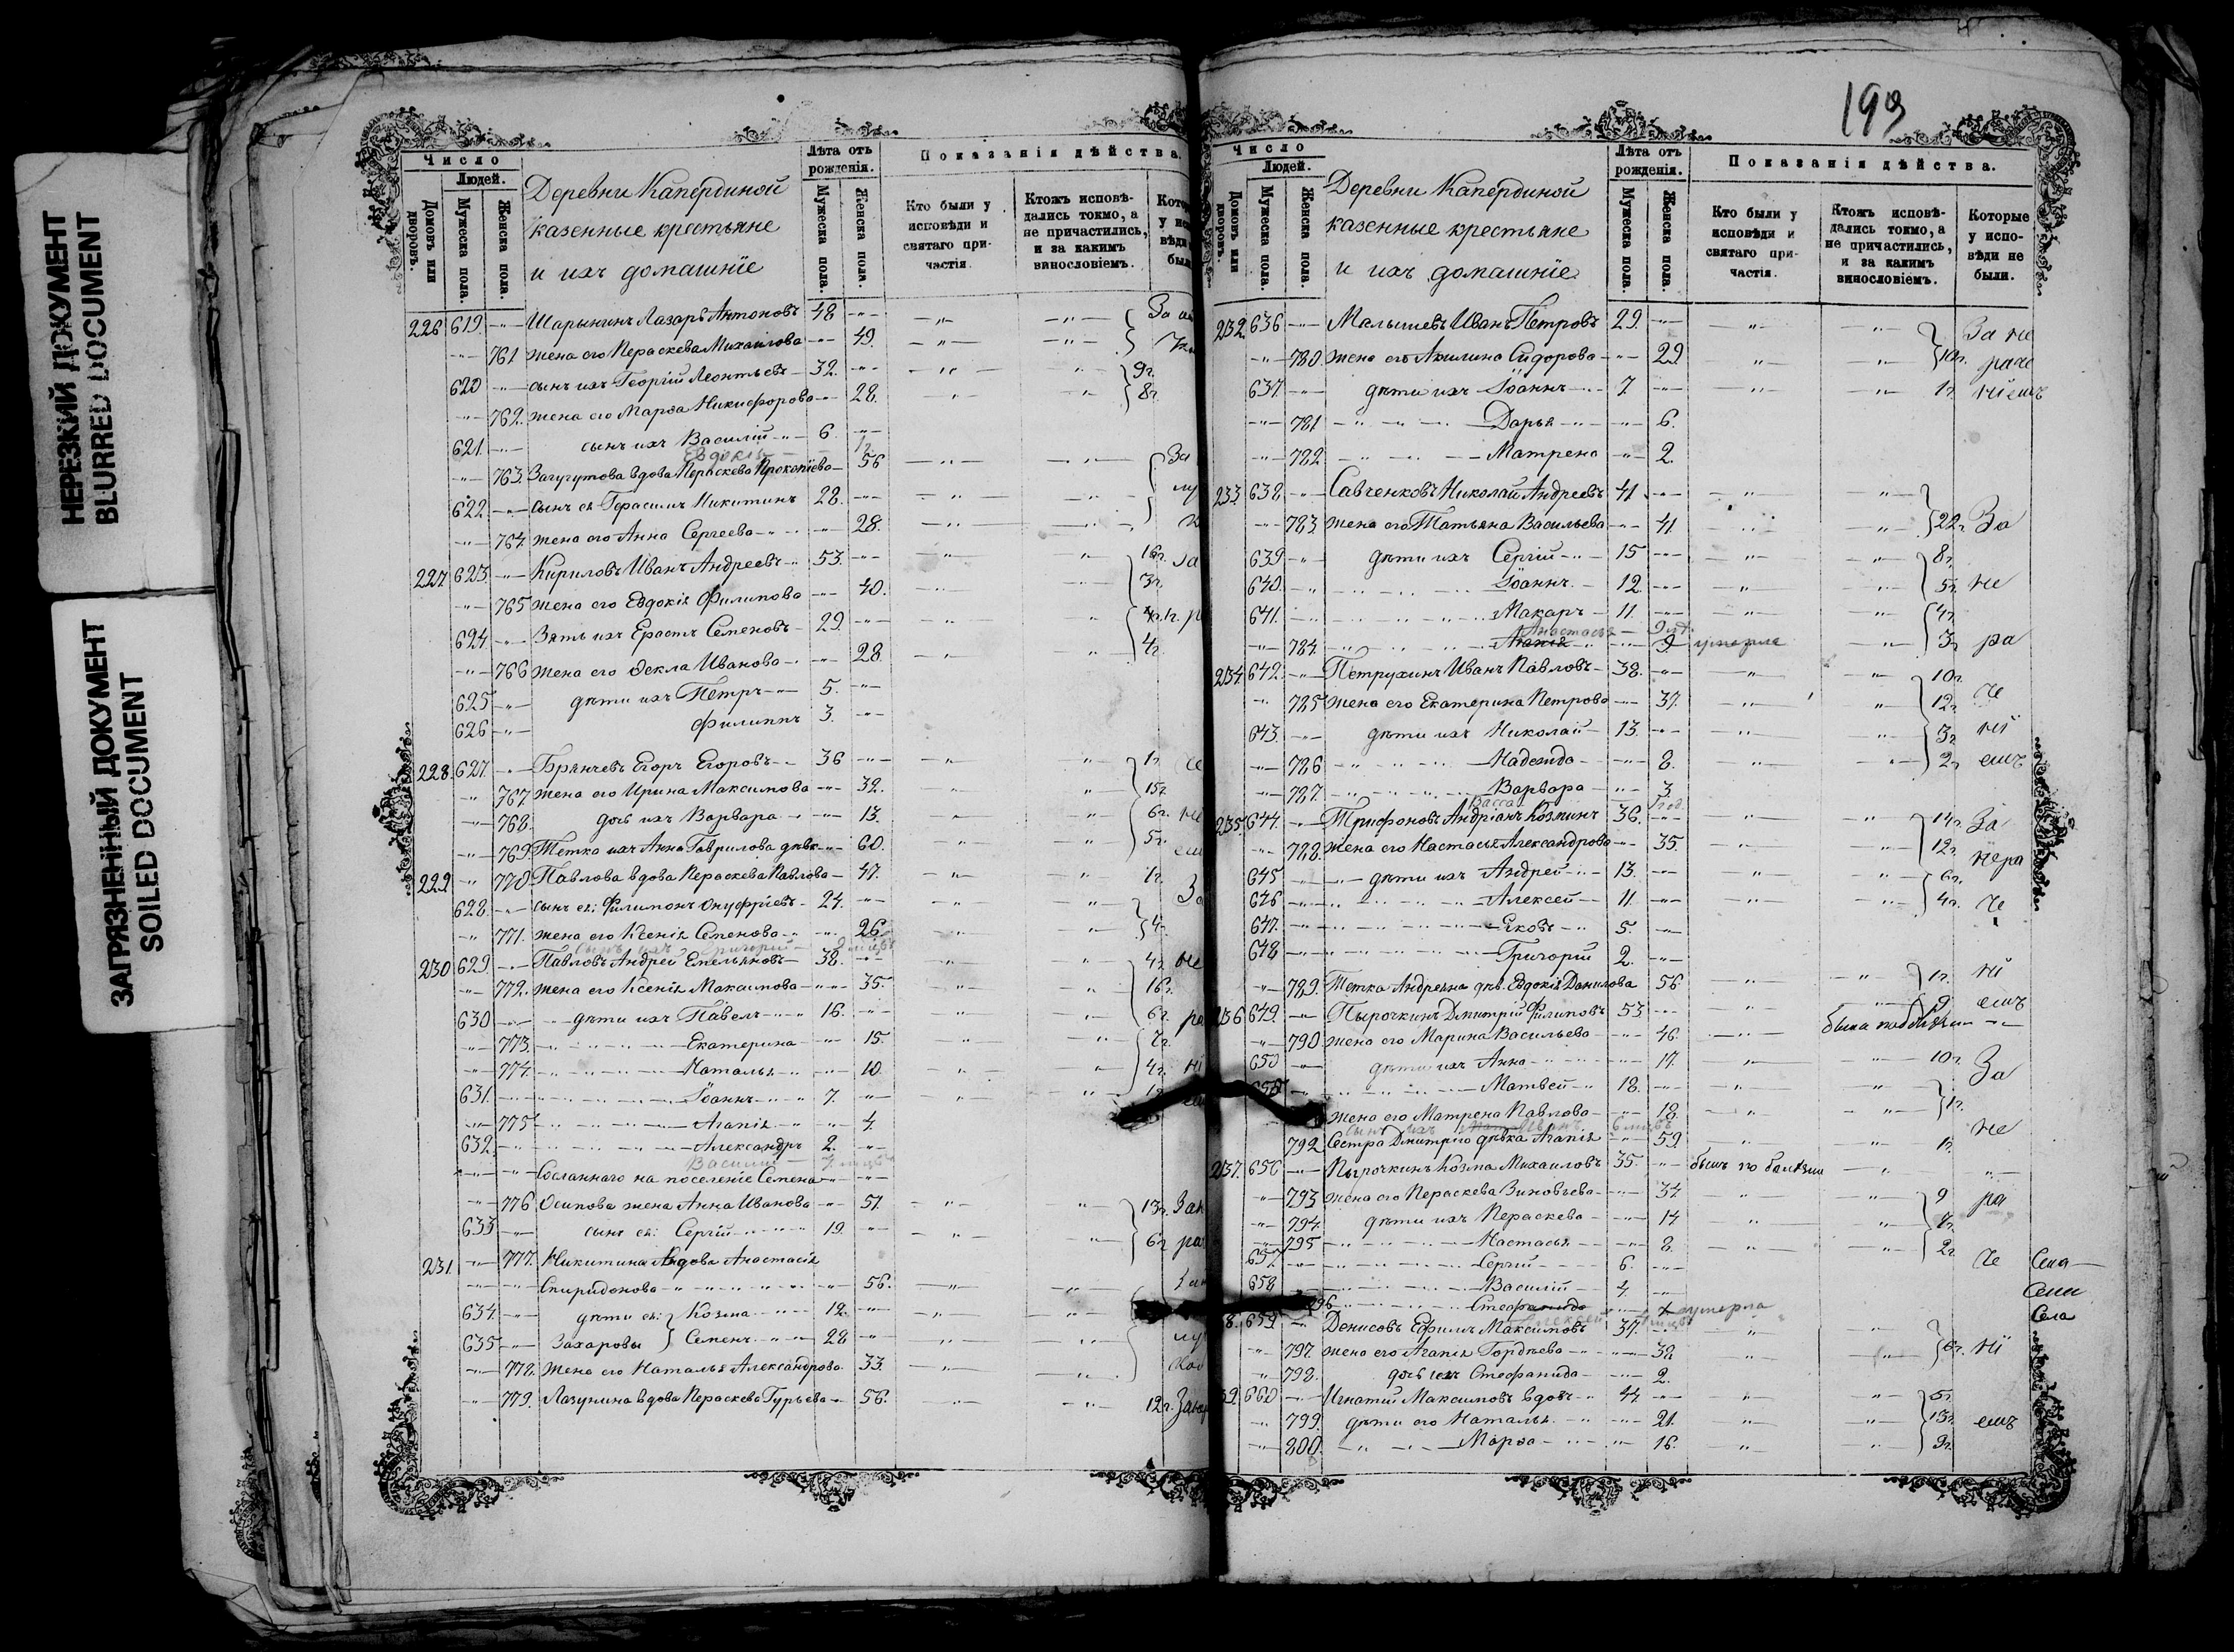 НЕРЕЗКИЙ ДОКУМЕНТ
BLURRED DOCUMENT
ЗАГРЯЗНЕННЫЙ ДОКУМЕНТ
SOILED DOCUMENT
Число
Людей.
Домовъ или дворовъ.
Мужеска пола.
Женска пола.
Деревни Капердиной
казенные крестьяне
и ихъ домашнiе
Лѣта отъ рожденiя.
Мужеска пола.
Женска пола.
Показанiя дѣйства.
Кто были у исповѣди и святаго причастiя.
Ктожъ исповѣдались токмо, а не причастились, и за какимъ винословiемъ.
226 619. Шарынинъ Лазарь Антоновъ 48
761 жена его Пераскева Михаилова 49.
620 сынъ ихъ Георгiй Леонтьевъ 32. 9г.
762. жена его Марѳа Никифорова 28. 8г.
621. сынъ ихъ Василiй 6.
Евдокiя
763. Загугутова вдова Пераскева Прокопiева 56 За
622. сынъ ея Герасимъ Никитинъ 28.
764. жена его Анна Сергеева 28.
227 623. Кириловъ Иванъ Андреевъ 53. 16г. За
765 жена его Евдокiя Филипова 40. 3г.
624 Зять ихъ Ерастъ Семеновъ 29.
766 жена его Ѳекла Иванова 28. 4г.
625 дѣти ихъ Петръ 5.
626 Филиппъ 3.
228. 627. Брянчевъ Егоръ Егоровъ 36 1г.
767. жена его Ирина Максимова 32. 15г.
768. дочь ихъ Варвара 13. 6г. не
769. Тетка ихъ Анна Гаврилова дѣвк. 60. 5г.
229 770. Павлова вдова Пераскева Павлова 47. 1г. За
628. сынъ ея: Филимонъ Онуфрiевъ 24.
771. жена его Ксенiя Семенова 26. 4г.
сынъ ихъ Григорий
230 629. Павловъ Андрей Емельяновъ 38. 4г. не
772. жена его Ксенiя Максимова 35. 16г.
630 дѣти ихъ Павелъ 16. 6г. ра
773. Екатерина 15. 7г.
774. Наталья 10. 4г. нi
631. Iоаннъ 7. 1г.
775 Агапiя 4.
632. Александръ 2.
Василий
Сосланнаго на поселенiе Семена
776 Осипова жена Анна Иванова 51. 13г.
633 сынъ ея: Сергiй 19. 6г. ра
231. 777. Никитина вдова Анастасiя
Спиридонова 56.
634. дѣти ея: Козма 19.
635 Захаровы Семенъ 28
778. жена его Наталья Александрова 33.
779. Лазунина вдова Пераскева Гурьева 56. 12г.
193
Число
Людей.
Домовъ или дворовъ.
Мужеска пола.
Женска пола.
Деревни Капердиной
казенные крестьяне
и ихъ домашнiе
Лѣта отъ рожденiя.
Мужеска пола.
Женска пола.
Показанiя дѣйства.
Кто были у исповѣди и святаго причастiя.
Ктожъ исповѣдались токмо, а не причастились, и за какимъ винословiемъ.
Которые у исповѣди не были.
232 636 Малышевъ Иванъ Петровъ 29. За не
780. жена его Акилина Сидорова 29 10г. раче
637. дѣти ихъ Iоаннъ 7. 1г. нiемъ
781 Дарья 6.
782 Матрена 2.
233 638 Савченковъ Николай Андреевъ 41
783 жена его Татьяна Васильева 41 22г. За
639. дѣти ихъ Сергiй 15 8г.
640. Iоаннъ 12. 5г. не
641. Макаръ 11. 4г.
Анастасья
784. Агапiя 9 умерла 3г. ра
234 642. Петрухинъ Иванъ Павловъ 38. 10г.
785 жена его Екатерина Петрова 37. 12г. че
643. дѣти ихъ Николай 13. 3г. нi
786 Надежда 8. 2г. емъ
787. Варвара 3.
Васса 1 год.
235 644. Трифоновъ Андрiанъ Козминъ 36. 14г. За
788. жена его Настасья Александрова 35. 12г. нера
645 дѣти ихъ Андрей 13. 6г.
646 Алексей 11. 4г. че
647. Яковъ 5.
648 Григорiй 2.
789. Тетка Андреяна дѣв. Евдокiя Данилова 56 1г. нi
236 649. Пырочкинъ Дмитрiй Филиповъ 53 9 емъ
790 жена его Марина Васильева 46. была по болѣзни
650 дѣти ихъ Анна 17. 10г. За
Матвей 18.
жена его Матрена Павлова 18. 1г.
сынъ ихъ Иванъ 6 мцвъ
792 Сестра Дмитрiю дѣвка Агапiя 59. 1г. не
237. 656 Пырочкинъ Козма Михаиловъ 35. былъ по болѣзни
793 жена его Пераскева Зиновьева 34. 9 ра
794. дѣти ихъ Пераскева 14
795 Настасья 8. 2г.
657. Сергiй 6. че
658 Василiй 4
Стефанида умерла
Алексей
659. Денисовъ Ефимъ Максимовъ 37.
797. жена его Агапiя Гордѣева 38 6г. нi
798. дочь ихъ Стефанида 2.
39. 660 Игнатiй Максимовъ вдовъ 44. 5г.
799. дѣти его Наталья 21. 13г. емъ
800. Марѳа 16. 9г.